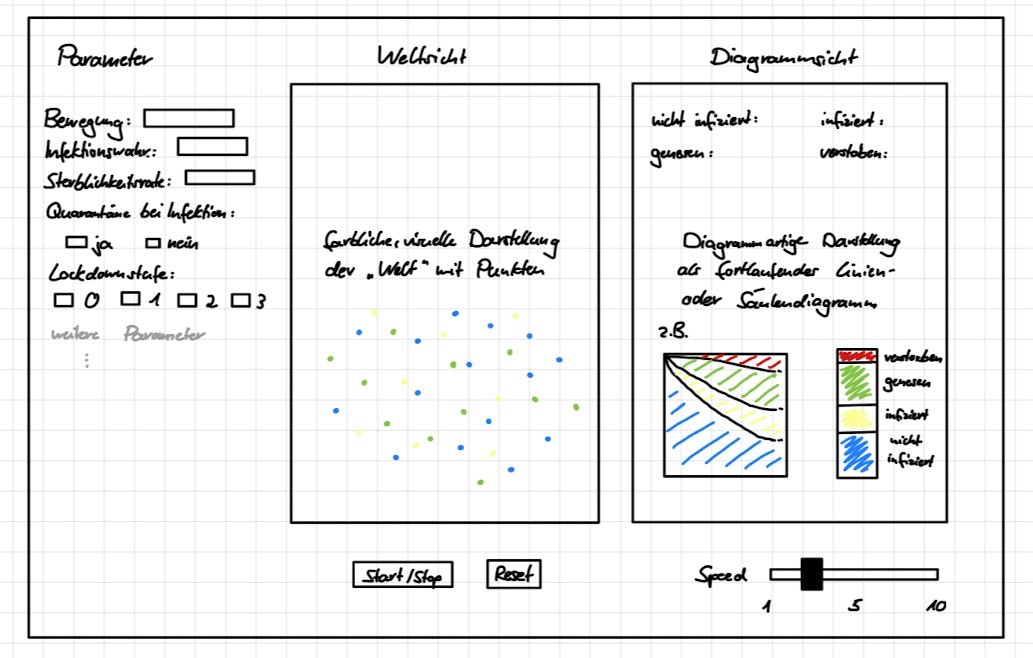 Parameter
Bewegung:
Infektionswahr.:
Sterblichkeitsrate:
Quarantäne bei Infektion:
ja nein
Lockdownstufe:
0 1 2 3
weitere Parameter
⋮
Weltsicht
farbliche, visuelle Darstellung
der „Welt“ mit Punkten
Start/Stop Reset
Diagrammsicht
nicht infiziert: infiziert:
genesen: verstorben:
Diagrammartige Darstellung
als fortlaufender Linien-
oder Säulendiagramm
z.B.
verstorben
genesen
infiziert
nicht
infiziert
Speed
1 5 10